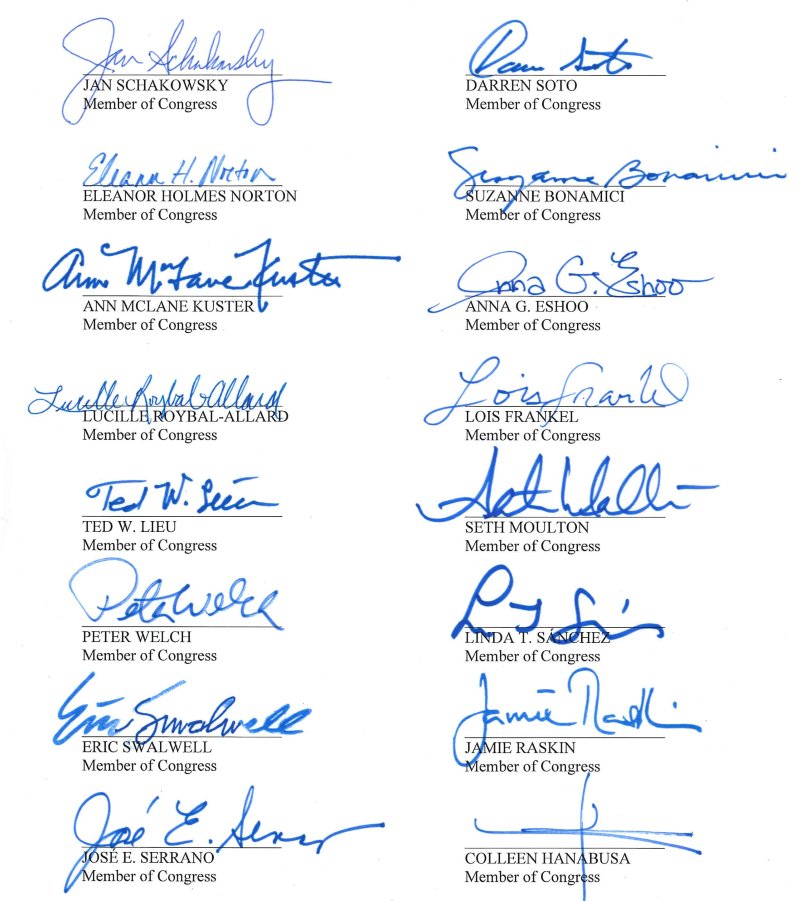 Jan Schakowsky
JAN SCHAKOWSKY
Member of Congress
Darren Soto
DARREN SOTO
Member of Congress
Eleanor H. Norton
ELEANOR HOLMES NORTON
Member of Congress
Suzanne Bonamici
SUZANNE BONAMICI
Member of Congress
Ann McLane Kuster
ANN MCLANE KUSTER
Member of Congress
Anna G. Eshoo
ANNA G. ESHOO
Member of Congress
Lucille Roybal-Allard
LUCILLE ROYBAL-ALLARD
Member of Congress
Lois Frankel
LOIS FRANKEL
Member of Congress
Ted W. Lieu
TED W. LIEU
Member of Congress
Seth Moulton
SETH MOULTON
Member of Congress
Peter Welch
PETER WELCH
Member of Congress
LINDA T. SÁNCHEZ
Member of Congress
Eric Swalwell
ERIC SWALWELL
Member of Congress
Jamie Raskin
JAMIE RASKIN
Member of Congress
José E. Serrano
JOSÉ E. SERRANO
Member of Congress
COLLEEN HANABUSA
Member of Congress